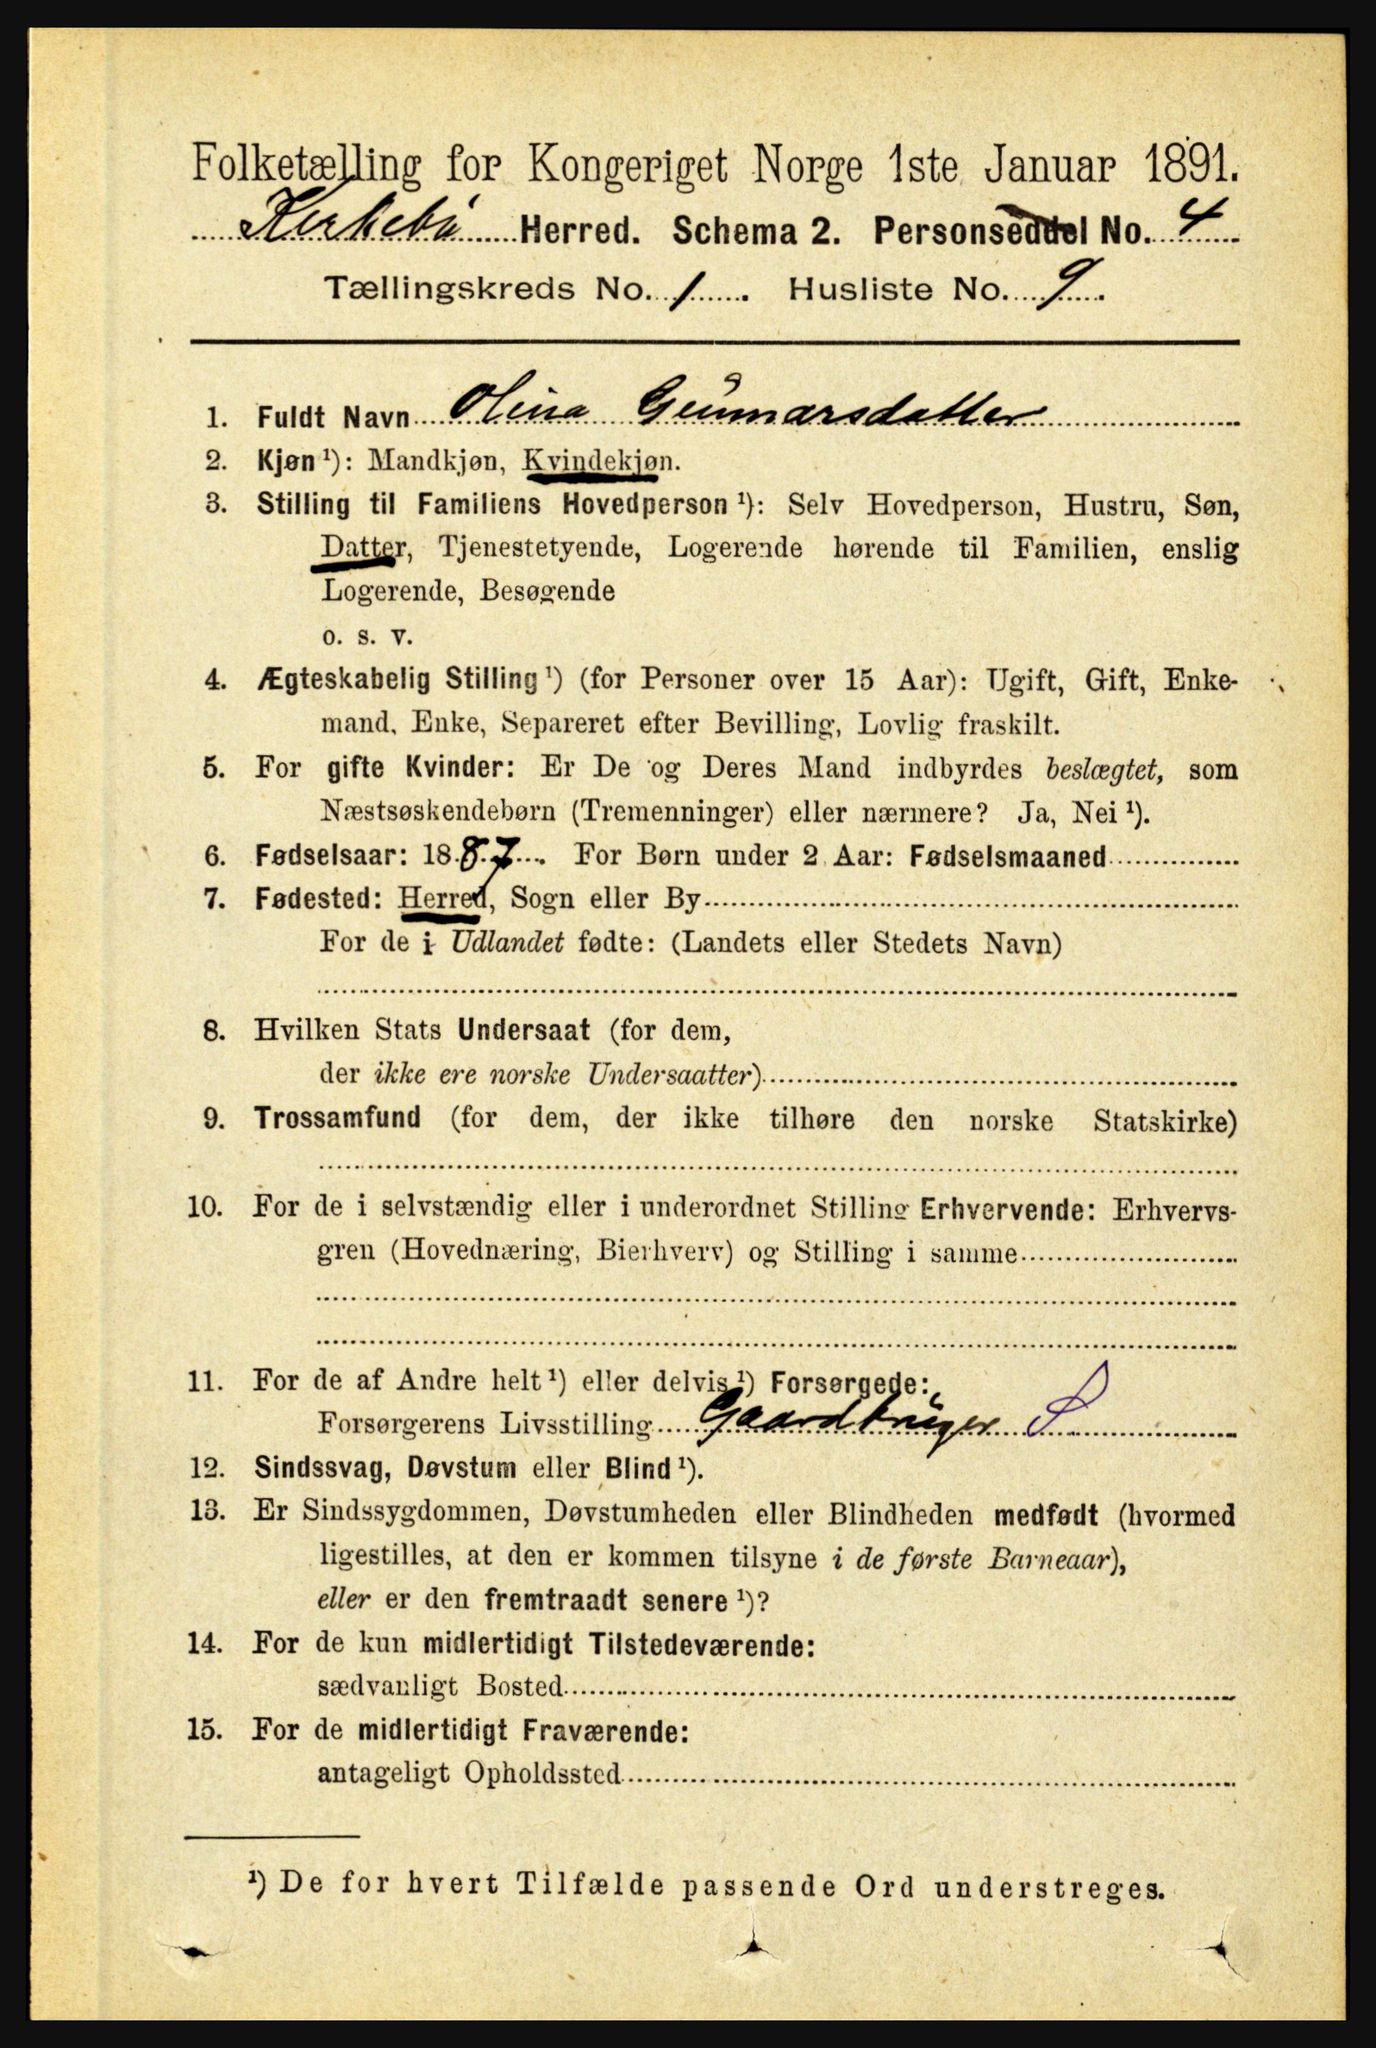 Folketælling for Kongeriget Norge 1ste Januar 1891.
Kirkebø Herred. Schema 2. Personseddel No. 4
Tællingskreds No. 1. Husliste No. 9.
1. Fuldt Navn Olina Gunnarsdatter
2. Kjøn ¹): Mandkjøn, Kvindekjøn.
3. Stilling til Familiens Hovedperson ¹): Selv Hovedperson, Hustru, Søn,
Datter, Tjenestetyende, Logerende hørende til Familien, enslig
Logerende, Besøgende
o. s. v.
4. Ægteskabelig Stilling ¹) (for Personer over 15 Aar): Ugift, Gift, Enke-
mand, Enke, Separeret efter Bevilling, Lovlig fraskilt.
5. For gifte Kvinder: Er De og Deres Mand indbyrdes beslægtet, som
Næstsøskendebørn (Tremenninger) eller nærmere? Ja, Nei ¹).
6. Fødselsaar: 1887. For Børn under 2 Aar: Fødselsmaaned
7. Fødested: Herred, Sogn eller By
For de i Udlandet fødte: (Landets eller Stedets Navn)
8. Hvilken Stats Undersaat (for dem,
der ikke ere norske Undersaatter)
9. Trossamfund (for dem, der ikke tilhøre den norske Statskirke)
10. For de i selvstændig eller i underordnet Stilling Erhvervende: Erhvervs-
gren (Hovednæring, Bierhverv) og Stilling i samme
11. For de af Andre helt ¹) eller delvis ¹) Forsørgede:
Forsørgerens Livsstilling Gaardbruger S
12. Sindssvag, Døvstum eller Blind ¹).
13. Er Sindssygdommen, Døvstumheden eller Blindheden medfødt (hvormed
ligestilles, at den er kommen tilsyne i de første Barneaar),
eller er den fremtraadt senere ¹)?
14. For de kun midlertidigt Tilstedeværende:
sædvanligt Bosted
15. For de midlertidigt Fraværende:
antageligt Opholdssted
¹) De for hvert Tilfælde passende Ord understreges.